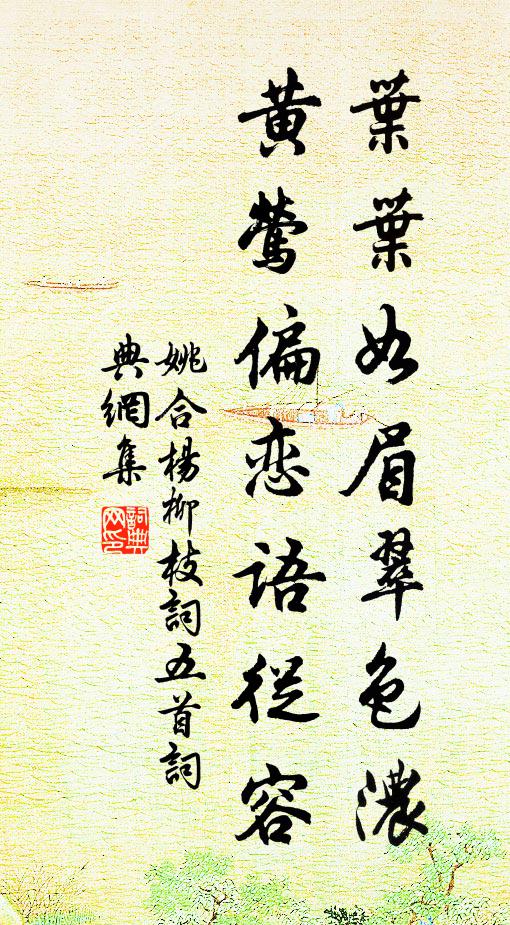 葉葉如眉翠色濃
黃鶯偏恋語從容
姚合楊柳枝詞五首詞
典網集
詞典
网印